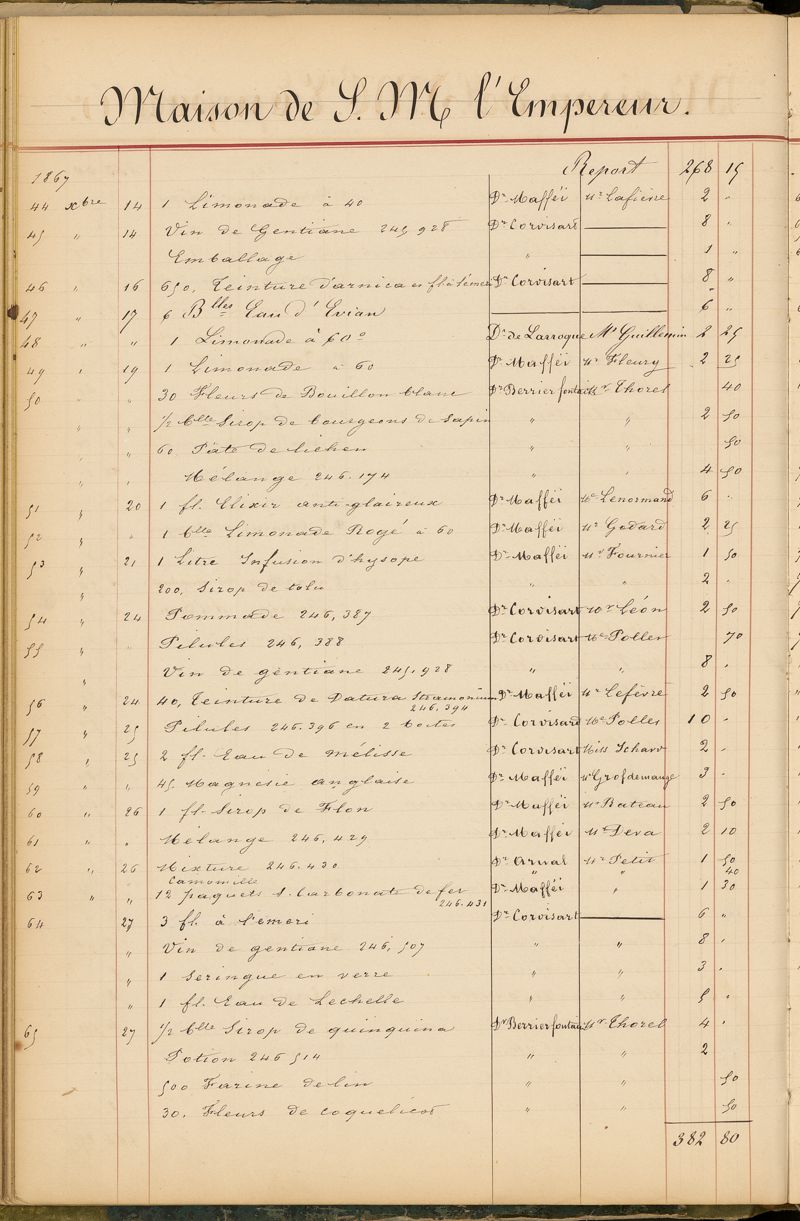 Maison de S. M l'Empereur.
1867 Report 268 15
44 xbre 14 1 Limonade à 40 Dr Mafféi Mr Lafière 2 "
45 " 14 Vin de Gentiane 245 928 Dr Corvisart 8 "
Emballage " 1 "
46 " 16 650, Teinture d'arnica Dr Corvisart 8 "
47 " 17 6 Blles Eau d'Evian 6 "
48 " " 1 Limonade à 60° Dr de Larroque Mr Guillemin 2 25
49 " 19 1 Limonade à 60 Dr Mafféi Mr Fleury 2 25
50 " " 30 Fleurs de Bouillon blanc Dr Berrier fontaine Mr Thorel 40
" " 1/2 blle Sirop de bourgeons de Sapin " " 2 50
" 60 Pâte de lichen " " 50
" " Mélange 246.174 " " 4 50
51 " 20 1 fl. Elixir anti-glaireux Dr Mafféi Me Lenormand 6 "
52 " " 1 blle Limonade Rogé à 60 Dr Mafféi Mr Godard 2 25
53 " 21 1 Litre Infusion d'hysope Dr Mafféi Mr Fournier 1 50
" 200, Sirop de tolu " " 2 "
54 " 24 Pommade 246,387 Dr Corvisart Mr Léon 2 50
55 " " Pilules 246,388 Dr Corvisart Me Poller 70
" Vin de gentiane 245.928 " " 8 "
56 " 24 40, Teinture de Datura Stramonium Dr Mafféi Mr Lefèvre 2 50
246.394
57 " 25 Pilules 246.396 en 2 boites Dr Corvisard Me Polles 10 "
58 " 25 2 fl. Eau de mélisse Dr Corvisart Miss Scharv 2 "
59 " " 45 Magnésie anglaise Dr Mafféi Mr Grosdemange 3 "
60 " 26 1 fl. Sirop de Flon Dr Mafféi Mr Bateau 2 50
61 " " Mélange 246,429 Dr Mafféi Mr Deva 2 10
62 " 26 Mixture 246.430 Dr Arnal Mr Petit 1 50
Camomille " " 40
63 " " 12 paquets s. Carbonate de fer Dr Mafféi " 1 30
246.431
64 27 3 fl. à l'emeri Dr Corvisart 6 "
" Vin de gentiane 246,507 " " 8 "
" 1 Seringue en verre " " 3 "
" 1 fl. Eau de Lechelle " " 5 "
65 27 1/2 blle Sirop de quinquina Dr Berrier fontaine Mr Thorel 4 "
Potion 246 514 " " 2
500 Farine de lin " " 50
30. Fleurs de coquelicot " " 50
382 80